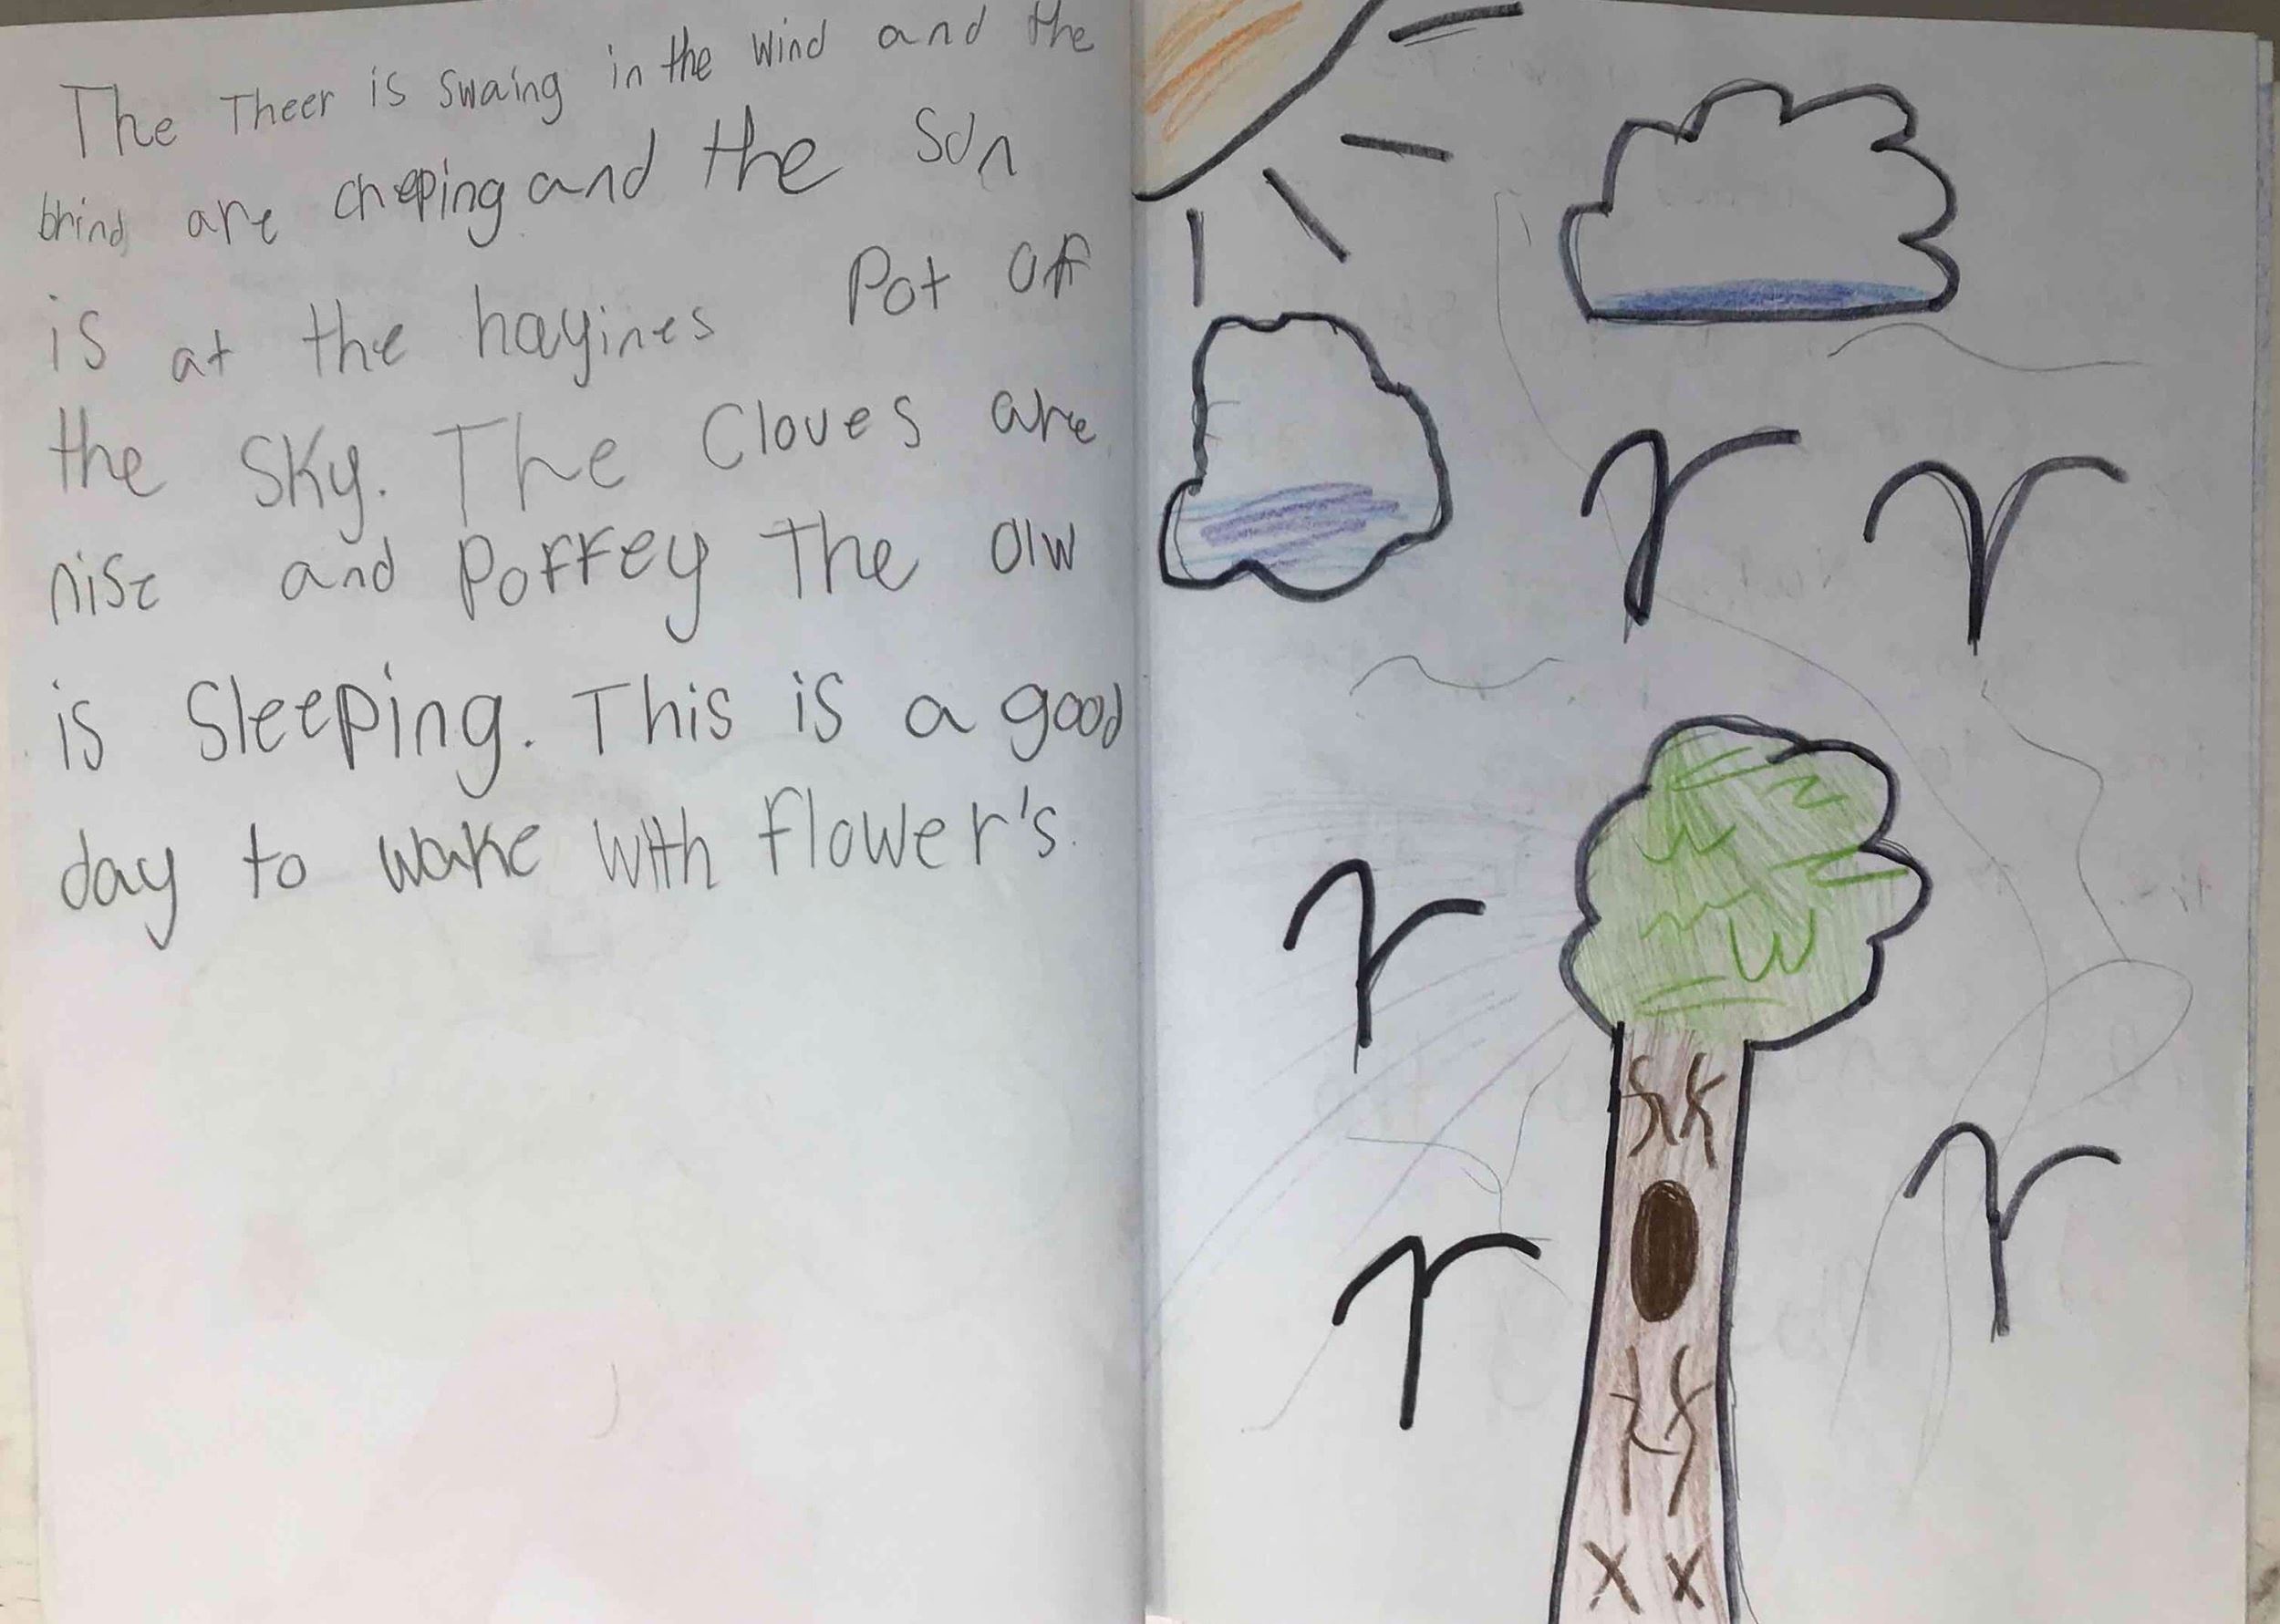 The Theer is swaing in the wind and the
brind are cheping and the sun
is at the hayines Pot of
the sky. The Cloues are
nise and Poffey The olw
is sleeping. This is a good
day to wake with flower's.